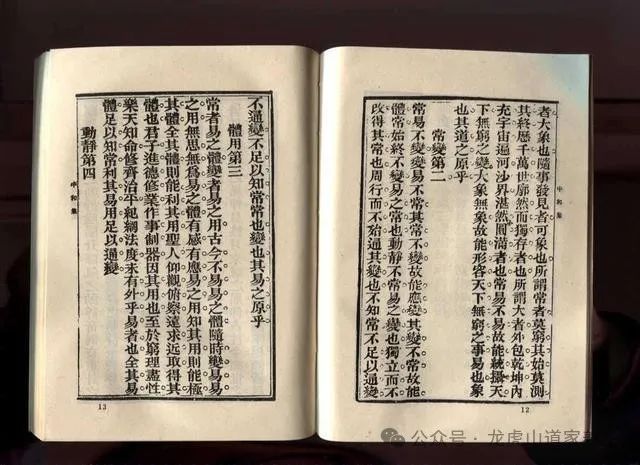 者大象也隨事發見者可象也所謂常者莫窮其始莫測
其終歷千萬世廓然而獨存者也所謂大者外包乾坤內
充宇宙遍河沙界湛然圓滿者也常易不易故能統攝天
下無窮之變大象無象故能形容天下無窮之事易也象
也其道之原乎
常變第二
常易不變變易不常其常不變故能應變其變不常故能
體常始終不變易之常也動靜不常易之變也獨立而不
改得其常也周行而不殆通其變也不知常不足以通變
中和集
12
不通變不足以知常常也變也其易之原乎
體用第三
常者易之體變者易之用古今不易易之體隨時變易易
之用無思無為易之體有感有應易之用知其用則能極
其體全其體則能利其用聖人仰觀俯察遠求近取得其
體也君子進德修業作事制器因其用也至於窮理盡性
樂天知命修齊治平紀綱法度未有外乎易者也全其易
體足以知常利其易用足以通變
動靜第四
中和集
13
公众号·龙虎山道家